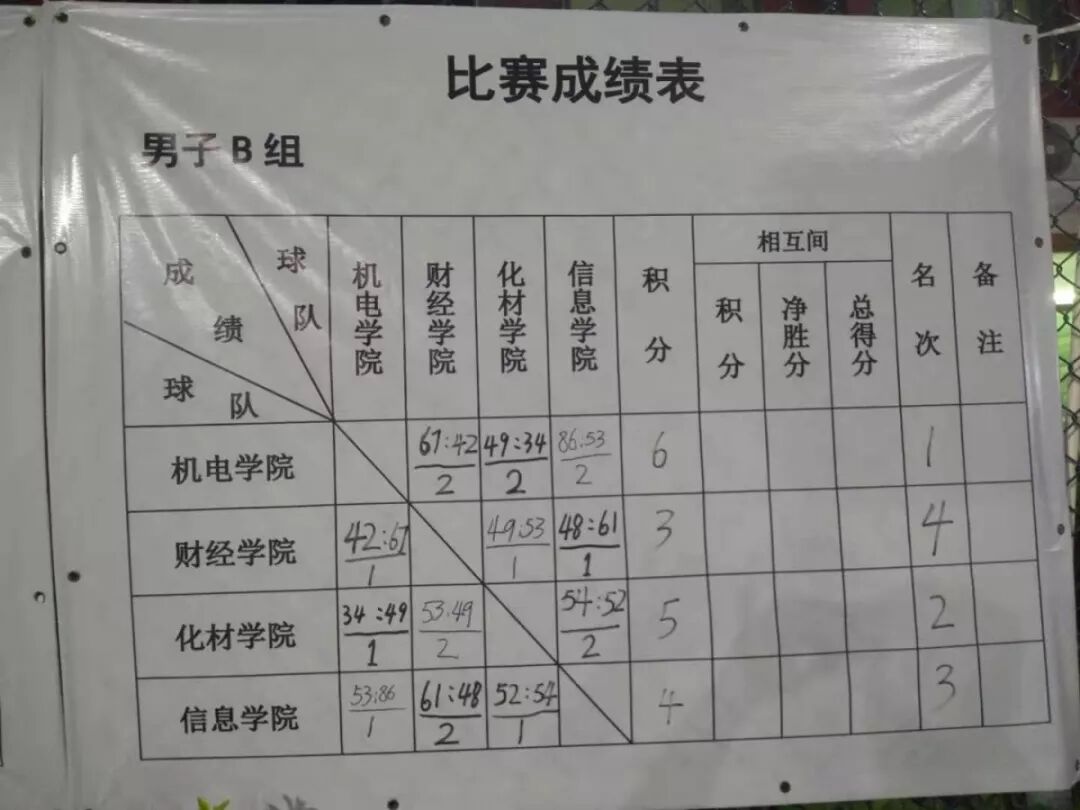 比赛成绩表
男子 B 组
成绩 球队 球队 机电学院 财经学院 化材学院 信息学院 积分 相互间 名次 备注
积分 净胜分 总得分
机电学院 67:42 49:34 86:53 6 1
2 2 2
财经学院 42:67 49:53 48:61 3 4
1 1 1
化材学院 34:49 53:49 54:52 5 2
1 2 2
信息学院 53:86 61:48 52:54 4 3
1 2 1